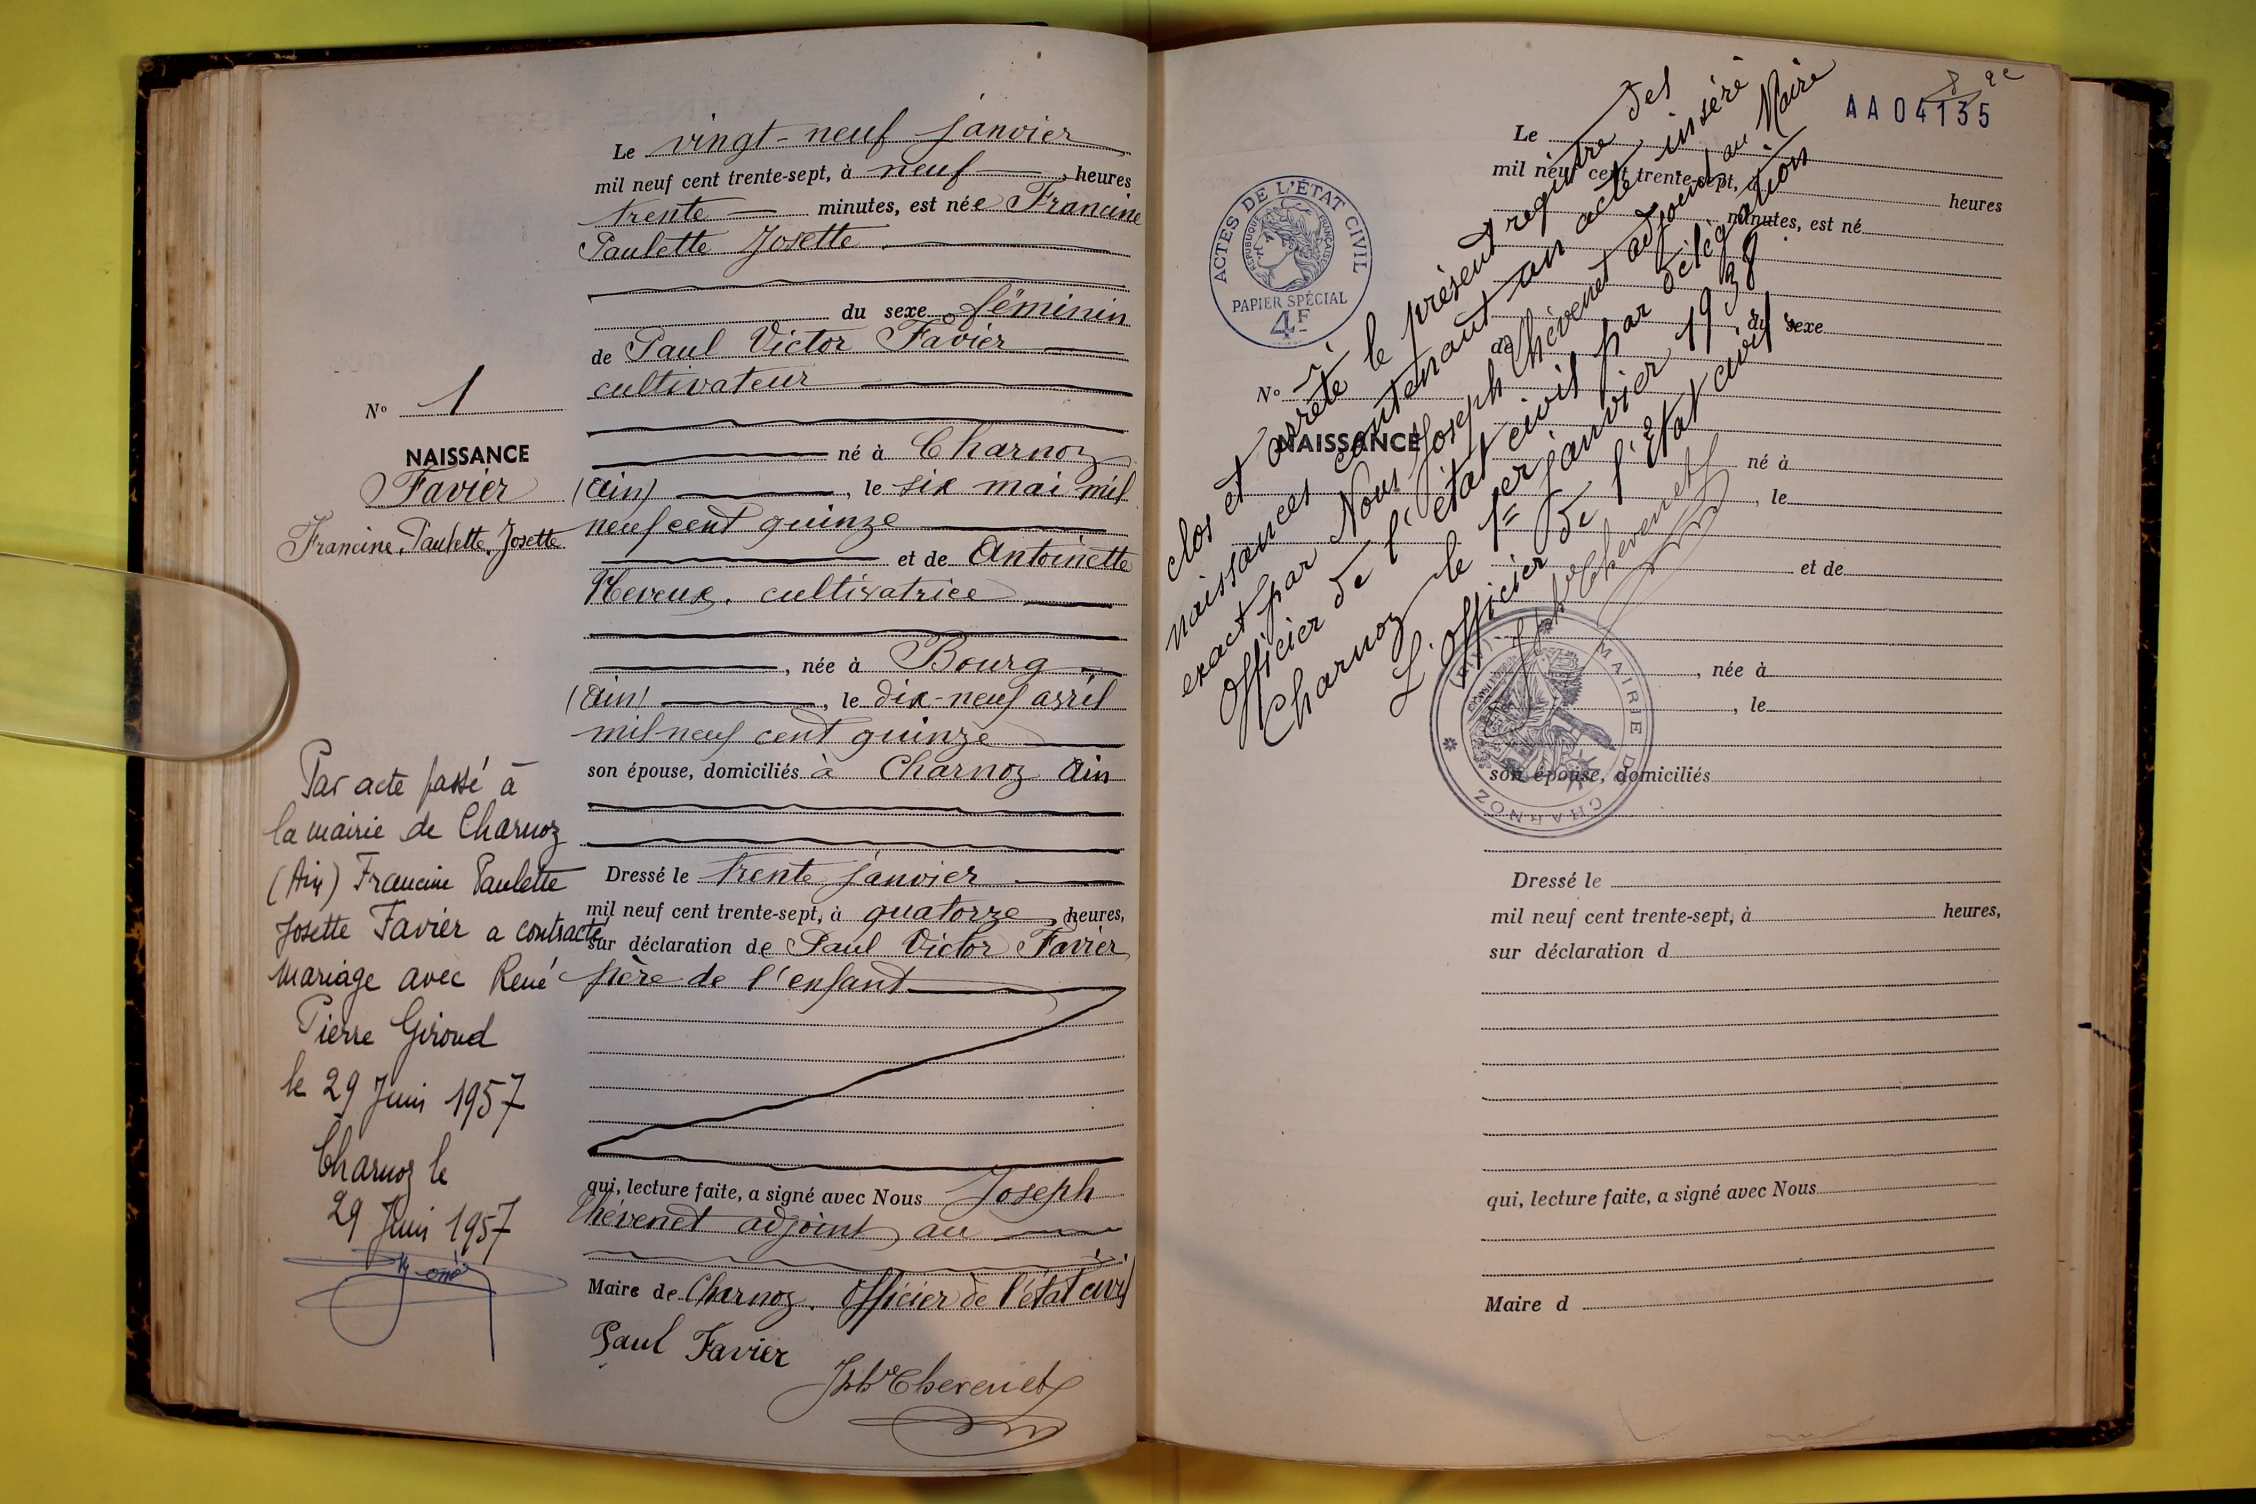 Le vingt-neuf janvier
mil neuf cent trente-sept, à neuf heures
trente minutes, est née Francine
Paulette Josette.
du sexe féminin
de Paul Victor Favier
cultivateur
né à Charnoz
(Ain), le six mai mil
neuf cent quinze
et de Antoinette
cultivatrice
, née à Bourg
(Ain), le dix-neuf avril
mil neuf cent quinze
son épouse, domiciliés à Charnoz Ain
Dressé le trente janvier
mil neuf cent trente-sept, à quatorze heures,
sur déclaration de Paul Victor Favier
père de l'enfant
qui, lecture faite, a signé avec Nous Joseph
Chévenet adjoint au
Maire de Charnoz. Officier de l'état civil
Paul Favier
Jph Chevenet
No 1
NAISSANCE
Favier
Francine, Paulette, Josette
Par acte passé à
la mairie de Charnoz
(Ain) Francine Paulette
Josette Favier a contracté
mariage avec René
Pierre Giroud
le 29 Juin 1957
Charnoz le
29 Juin 1957
AA04135
ACTES DE L'ÉTAT CIVIL
RÉPUBLIQUE FRANÇAISE
PAPIER SPÉCIAL
4F
No
NAISSANCE
clos et arrêté le présent registre des
naissances contenant un acte inséré
exact par Nous Joseph Chévenet adjoint au Maire
Officier de l'état civil par délégation
Charnoz le 1er janvier 1938
L'Officier de l'Etat civil
Jph Chevenet
MAIRIE DE CHARNOZ
Le
mil neuf cent trente-sept, à
heures
minutes, est né
du sexe
de
né à
, le
et de
, née à
, le
son épouse, domiciliés
Dressé le
mil neuf cent trente-sept, à heures,
sur déclaration d
qui, lecture faite, a signé avec Nous
Maire d